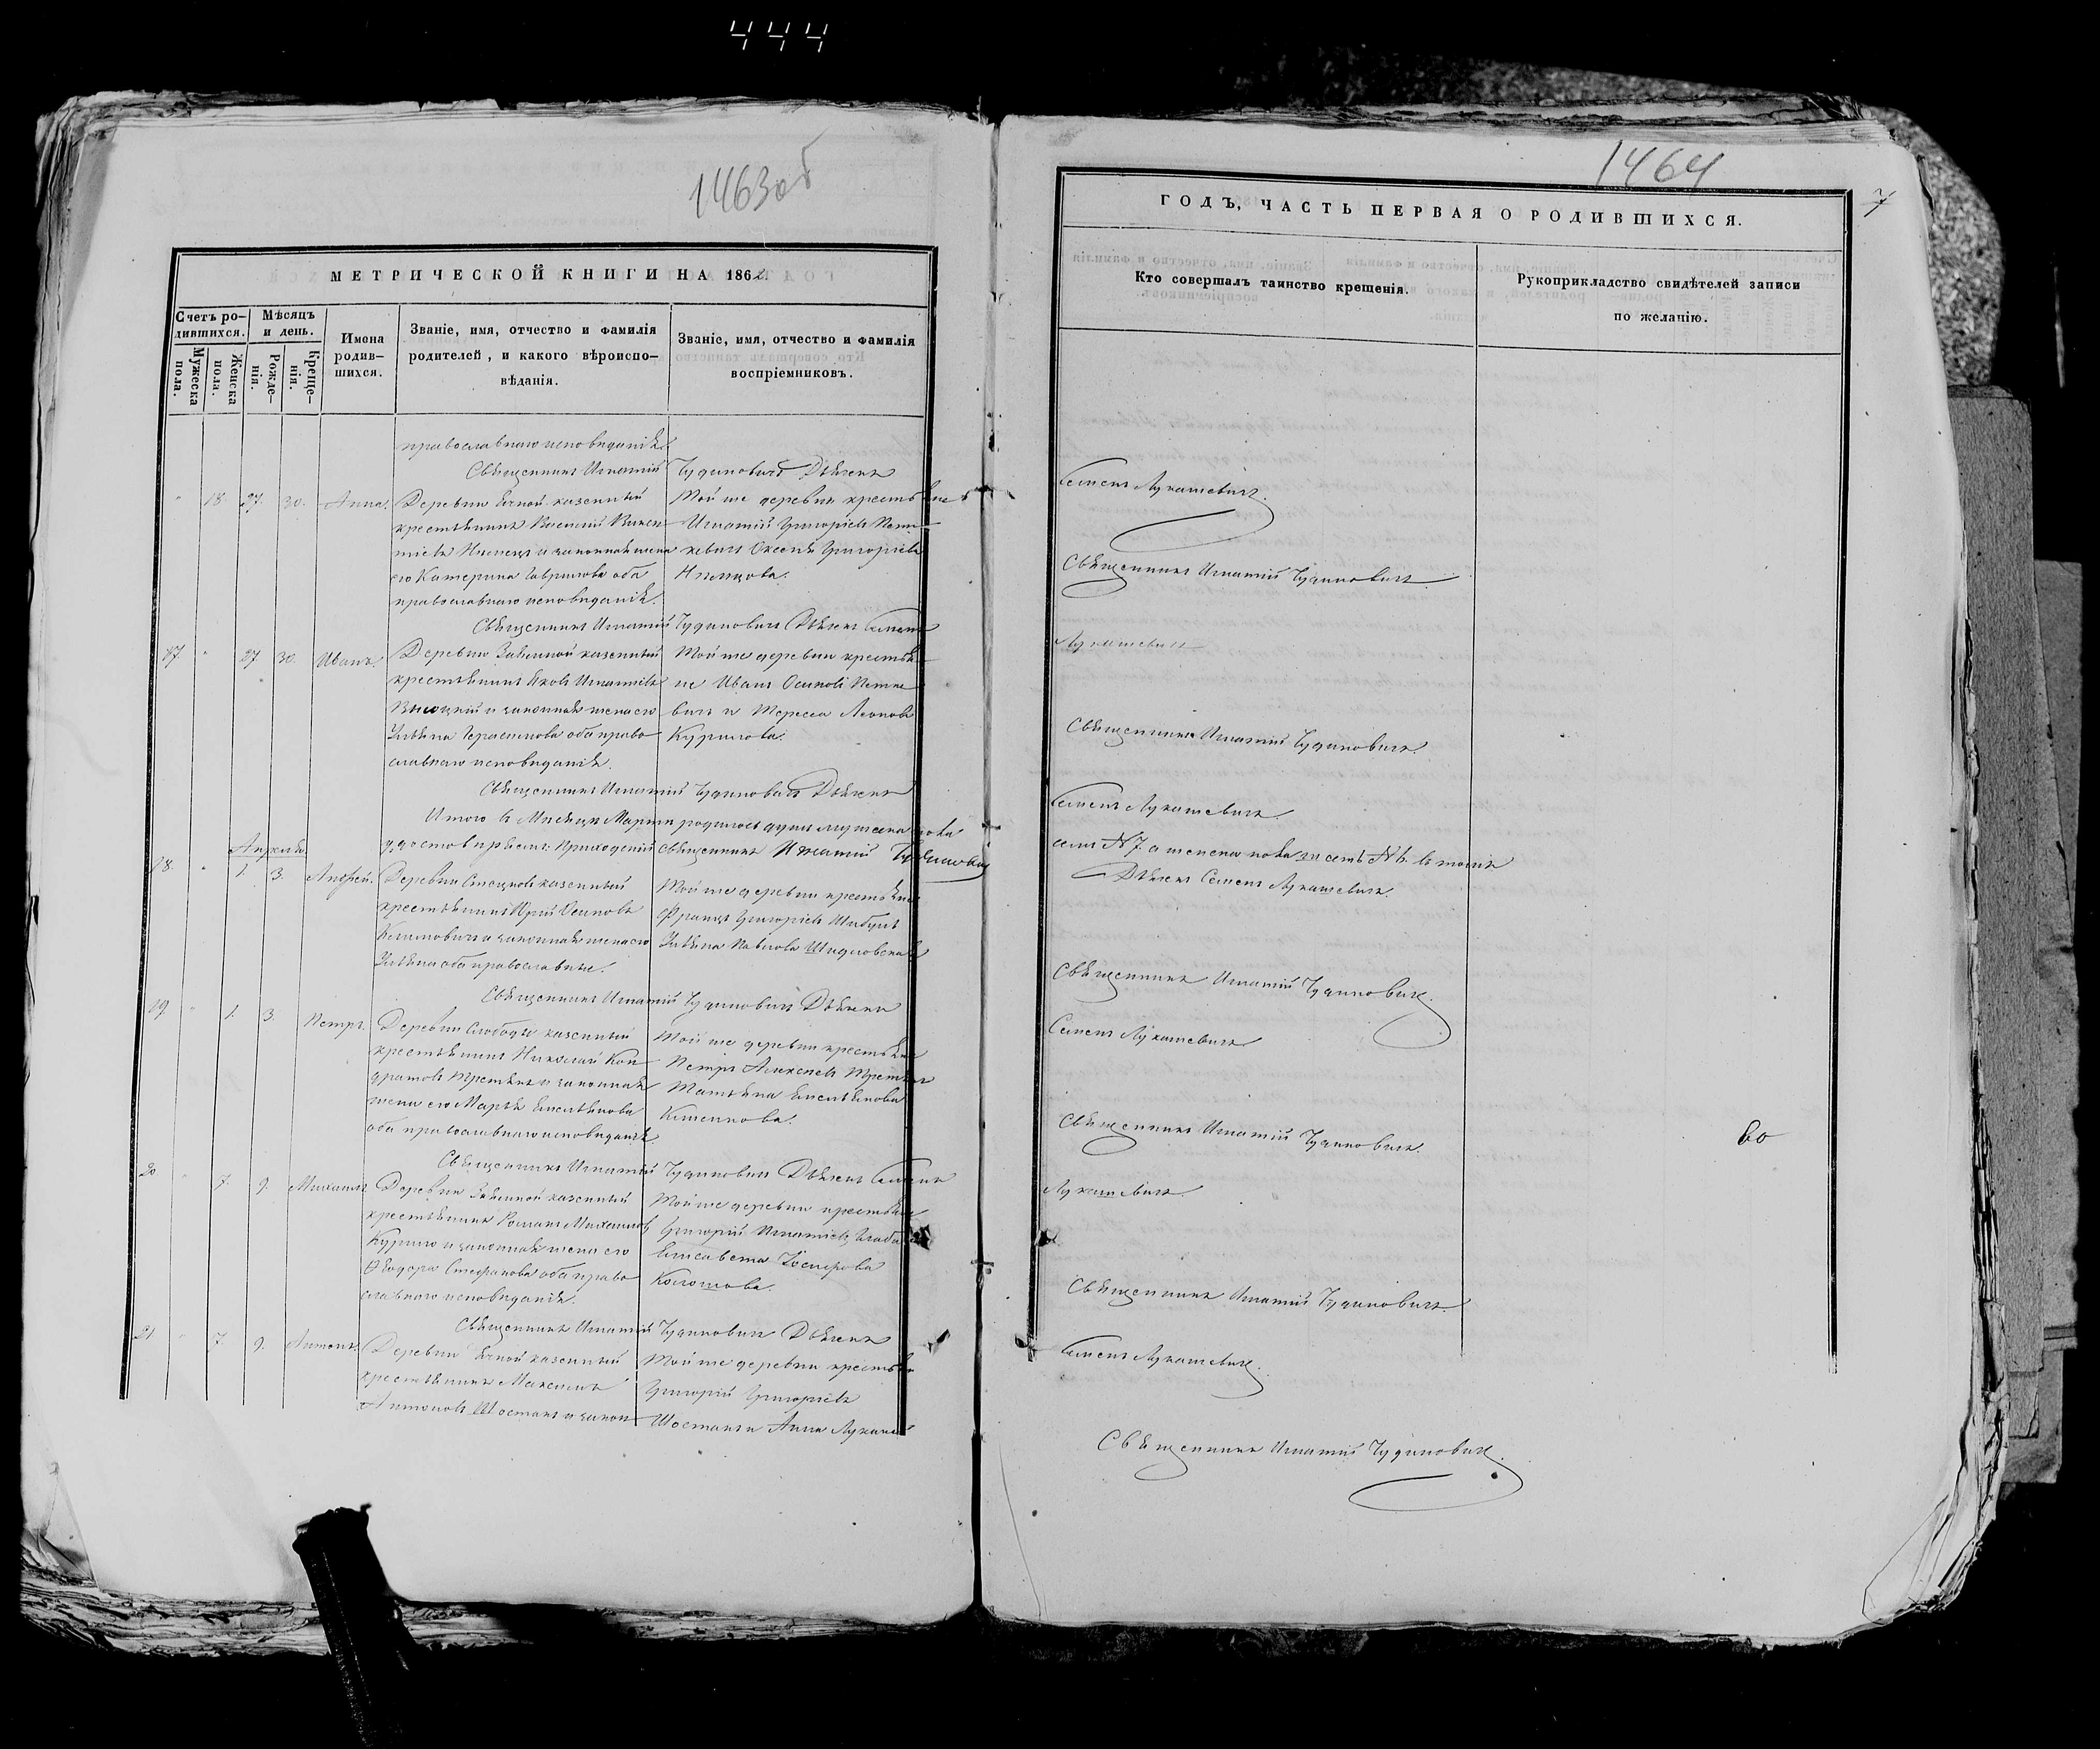 444
1463об
МЕТРИЧЕСКОЙ КНИГИ НА 1862
Счетъ ро-
дившихся.
Мужеска
пола.
Женска
пола.
Мѣсяцъ
и день.
Рожде-
нія.
Креще-
нія.
Имена
родив-
шихся.
Званіе, имя, отчество и фамилія
родителей, и какого вѣроиспо-
вѣданія.
Званіе, имя, отчество и фамилія
воспріемниковъ.
православнаго исповиданія.
Священникъ Игнатій Чудиновичъ Дьячекъ
" 18. 27. 30. Анна.
Деревни казенный
крестьянинъ Василій
и законная жена
его Катерина Гаврилова оба
православнаго исповиданія.
Той же деревни крестьяне
Игнатій Григорьевъ
Григорьева
Священникъ Игнатій Чудиновичъ Дьячекъ Семенъ
17. " 27. 30. Иванъ.
Деревни казенный
крестьянинъ Яковъ Игнатьевъ
Высоцкій и законная жена его
Ульяна Герасимова оба право-
славнаго исповиданія.
Той же деревни крестья-
не Иванъ Осиповъ Петке-
вичъ и Тереса Леонова
Курилова.
Священникъ Игнатій Чудиновичъ Дьячекъ
Итого въ Мисяце Марти родилось душъ мужеска пола
удостовиряемъ: Приходскій священникъ Игнатій Чудиновичъ
Апрѣль.
18. " 1. 3. Андрей.
Деревни казенный
крестьянинъ Юрій Осиповъ
Климовичъ и законная жена его
Ульяна оба православные.
Той же деревни крестьяне
Францъ Григорьевъ Шибутъ
Ульяна Павлова Шидловская
Священникъ Игнатій Чудиновичъ Дьячекъ
19. " 1. 3. Петръ.
Деревни Слободы казенный
крестьянинъ Николай Кон-
дратовъ Третьякъ и законная
жена его Марья Емельянова
оба православнаго исповиданія
Той же деревни крестьяне
Петръ Алексеевъ Третьякъ
Татьяна Емельянова
Священникъ Игнатій Чудиновичъ Дьячекъ Семенъ
20. " 7. 9. Михаилъ.
Деревни казенный
крестьянинъ Романъ Михаиловъ
Курило и законная жена его
Ѳеодора Стефанова оба право-
славнаго исповиданія.
Той же деревни крестьяне
Григорій Игнатьевъ
Елисавета Іосифова
Священникъ Игнатій Чудиновичъ Дьячекъ
21. " 7. 9. Антонъ.
Деревни казенный
крестьянинъ Максимъ
Антоновъ Шостакъ и закон-
Той же деревни крестьяне
Григорій Григорьевъ
Шостакъ и Анна
1464
7
ГОДЪ, ЧАСТЬ ПЕРВАЯ О РОДИВШИХСЯ.
Кто совершалъ таинство крещенія.
Рукоприкладство свидѣтелей записи
по желанію.
Семенъ Лукашевичъ.
Священникъ Игнатій Чудиновичъ
Лукашевичъ
Священникъ Игнатій Чудиновичъ.
Семенъ Лукашевичъ.
семь № 7. а женска пола шесть № 6. въ томъ
Дьячекъ Семенъ Лукашевичъ.
Священникъ Игнатій Чудиновичъ.
Семенъ Лукашевичъ
Священникъ Игнатій Чудиновичъ.
Лукашевичъ.
Священникъ Игнатій Чудиновичъ.
Семенъ Лукашевичъ.
Священникъ Игнатій Чудиновичъ.